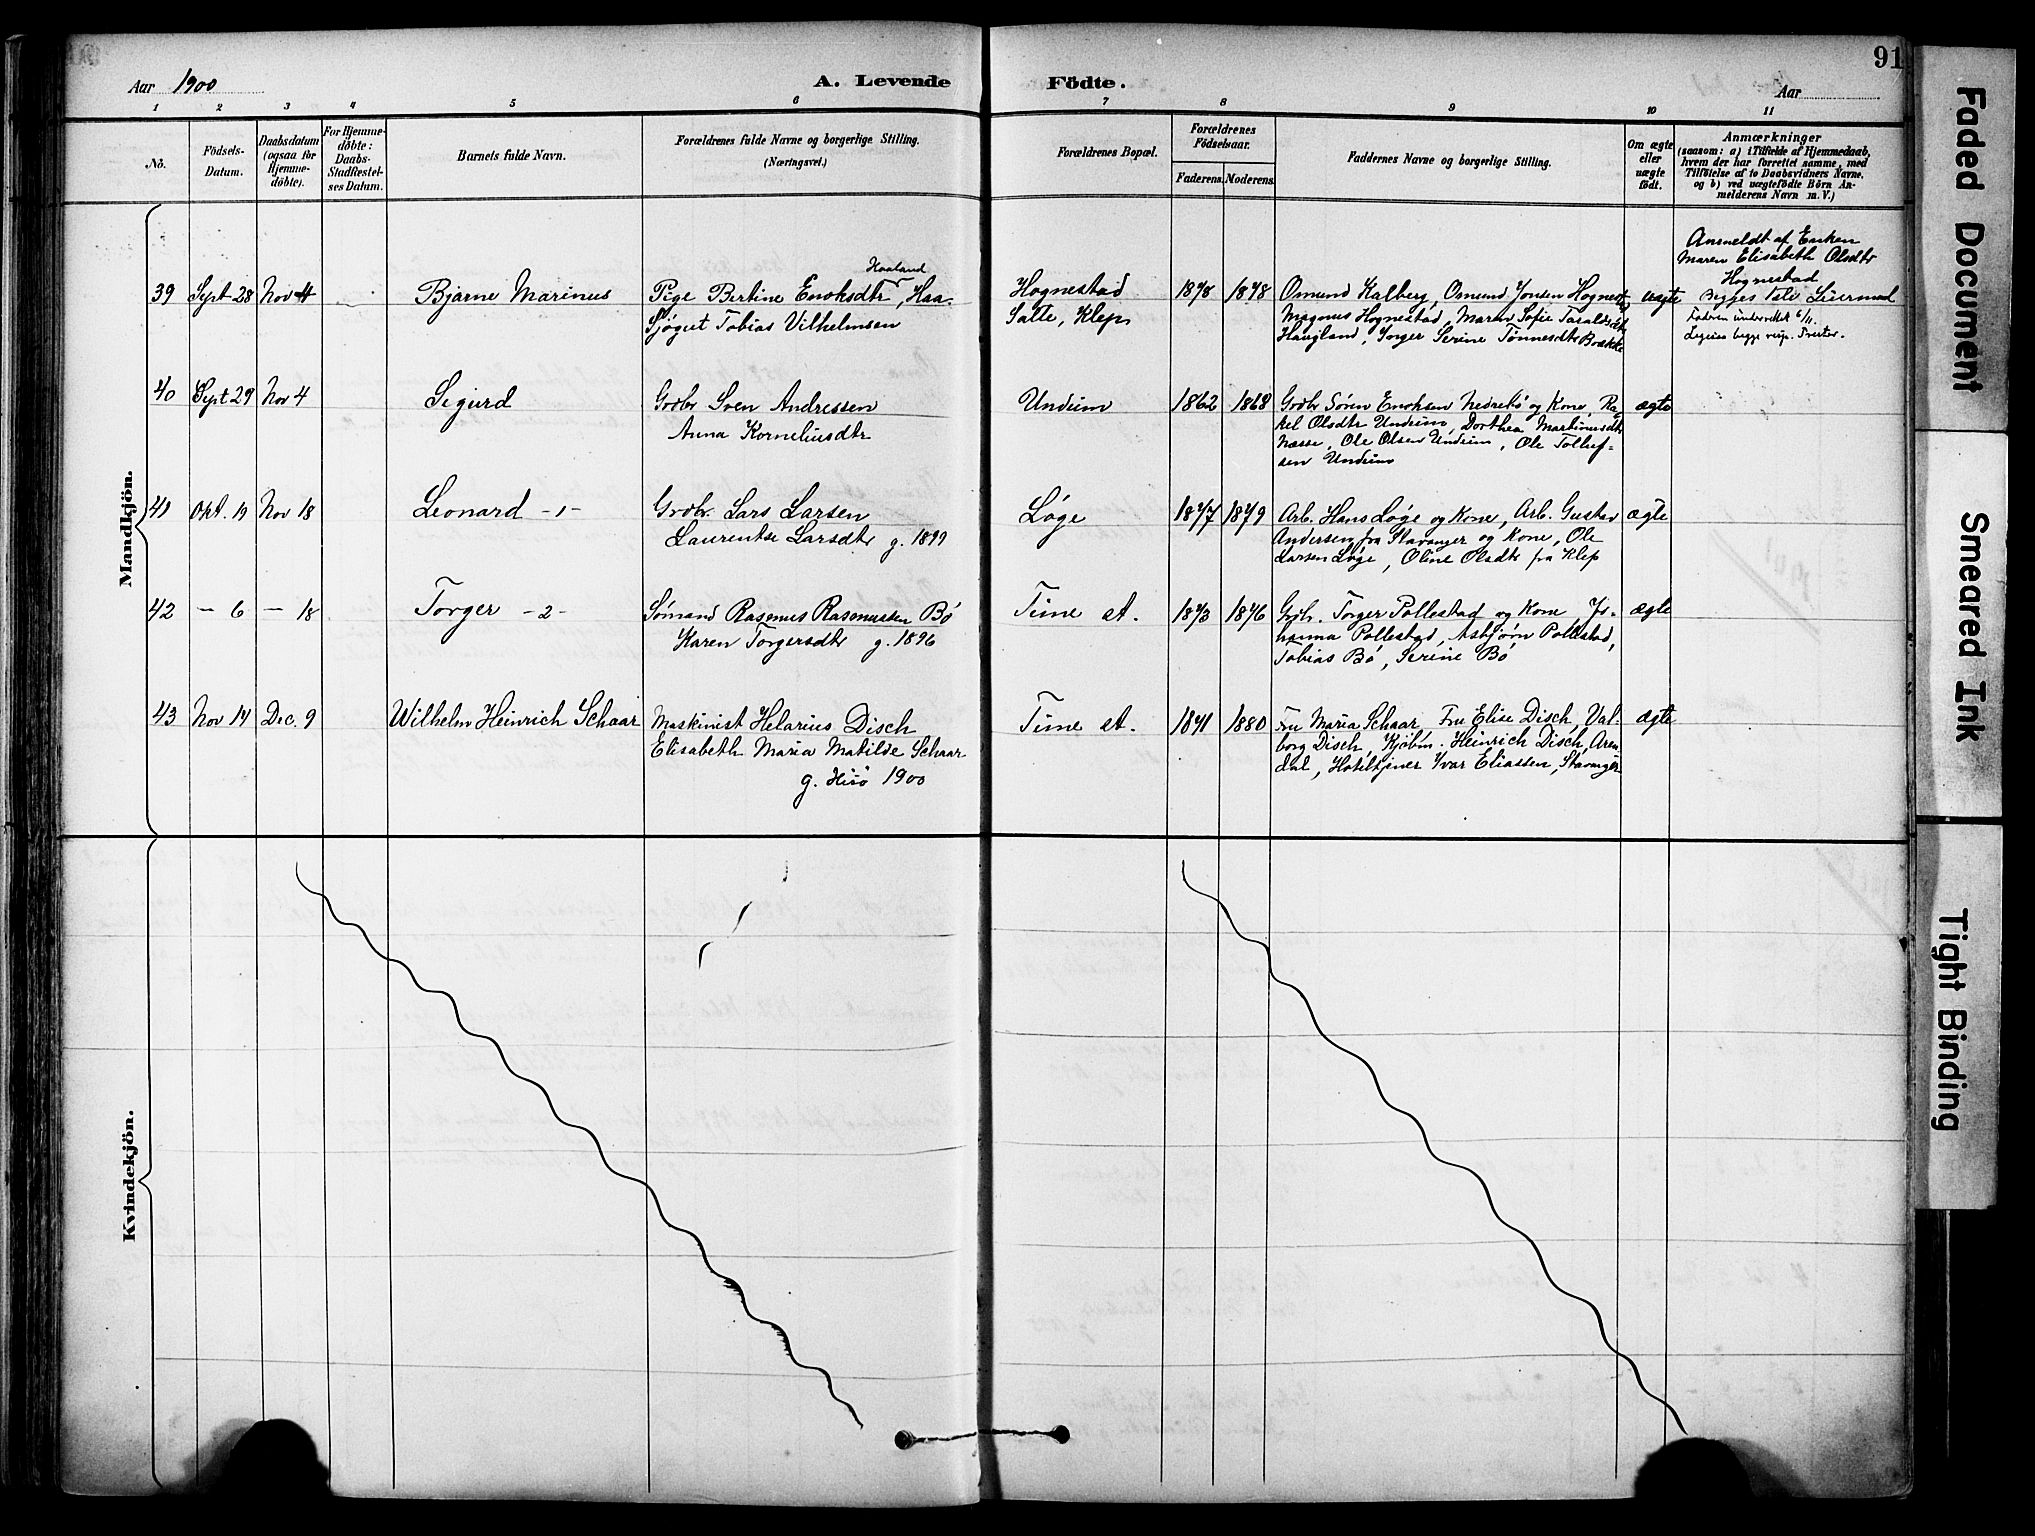 91
Aar 1900
A. Levende Födte.
Aar
1 2 3 4 5 6 7 8 9 10 11
No.
Födsels-
Datum.
Daabsdatum
(ogsaa for
Hjemme-
döbte).
For Hjemme-
döbte:
Daabs-
Stadfestel-
ses Datum.
Barnets fulde Navn.
Forældrenes fulde Navne og borgerlige Stilling.
(Næringsvei.)
Forældrenes Bopæl.
Forældrenes
Födselsaar.
Faderens. Moderens.
Faddernes Navne og borgerlige Stilling.
Om ægte
eller
uægte
födt.
Anmærkninger
(saasom: a) i Tilfælde af Hjemmedaab,
hvem der har forrettet samme, med
Tilföielse af to Daabsvidners Navne,
og b) ved uægtefödte Börn An-
melderens Navn m. V.)
Mandkjön.
39 Sept 28 Nov 4
Bjarne Marinus
Haaland
Pige Bertine Enoksdtr, Haa.
Sjøgut Tobias Vilhelmsen
Hognestad
Salte, Klep
1878 1878
Osmund Kalberg, Osmund Jonsen Hognest
Magnus Hognestad, Maren Sofie Taraldsdtr
Haugland, Inger Serine Tønnesdtr Brække
uægte
Anmeldt af Enken
Maren Elisabeth Olsdtr
Hognestad
Begges 1ste Leiermaal
Faderen underrettet 6/11.
begge
40 Sept 29 Nov 4
Sigurd
Grdbr Sven Andressen
Anna Korneliusdtr
Undeim
1862 1868
Grdbr Søren Enoksen Nedrebø og Kone, Ra-
kel Olsdtr Undeim, Dorthea Martinusdtr
Næsse, Ole Olsen Undeim, Ole Tollef-
sen Undeim
ægte
41 Okt. 19 Nov 18
Leonard -1-
Grdbr. Lars Larsen
Laurentse Larsdtr g. 1899
Løge
1877 1879
Arb. Hans Løge og Kone, Arb. Gustav
Andersen fra Stavanger og Kone, Ole
Larsen Løge, Oline Olsdtr fra Klep
ægte
42 - 6 - 18
Torger -2-
Sømand Rasmus Rasmussen Bø
Karen Torgersdtr g. 1896
Time st.
1873 1876
Grdb. Torger Pollestad og Kone Jo-
hanna Pollestad, Asbjørn Pollestad,
Tobias Bø, Serine Bø
ægte
43 Nov 14 Dec. 9
Wilhelm Heinrich Schaar
Maskinist Helarius Disch
Elisabeth Maria Matilde Schaar
g. Hisø 1900
Time st.
1871 1880
Fru Maria Schaar, Fru Elise Disch, Val-
borg Disch, Kjøbm. Heinrich Disch, Aren-
dal, Hoteltjener Ivar Eliassen, Stavanger
ægte
Kvindekjön.
Faded Document
Smeared Ink
Tight Binding